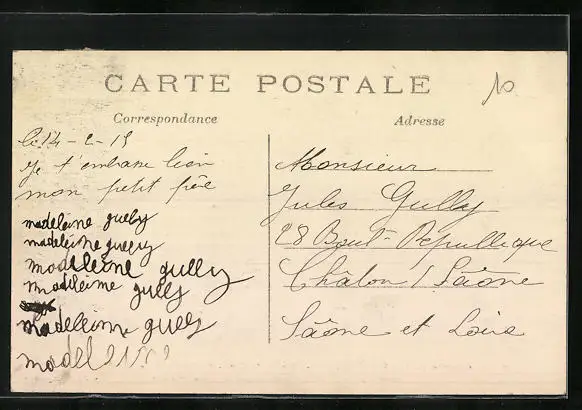 CARTE POSTALE
10
Correspondance
Adresse
le 14-2-15
Je t'embrasse bien
mon petit père
madeleine gully
madeleine gully
madeleine gully
madeleine gully
madeleine gully
madel
Monsieur
Jules Gully
28 Boul. République
Châlon / Saône
Saône et Loire